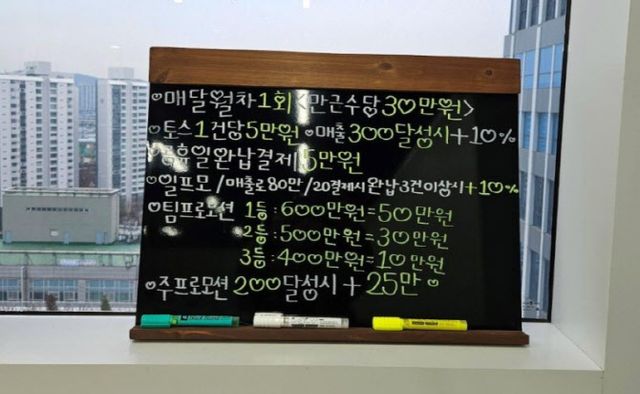 ♡매달월차1회<만근수당30만원>
♡토스1건당5만원 ♡매출300달성시+10%
공휴일완납결제 5만원
♡일프로모/매출로80만/20결제시완납3건이상시+10%
♡팀프로모션 1등:600만원=50만원
2등:500만원=30만원
3등:400만원=10만원
♡주프로모션 200달성시+25만♡